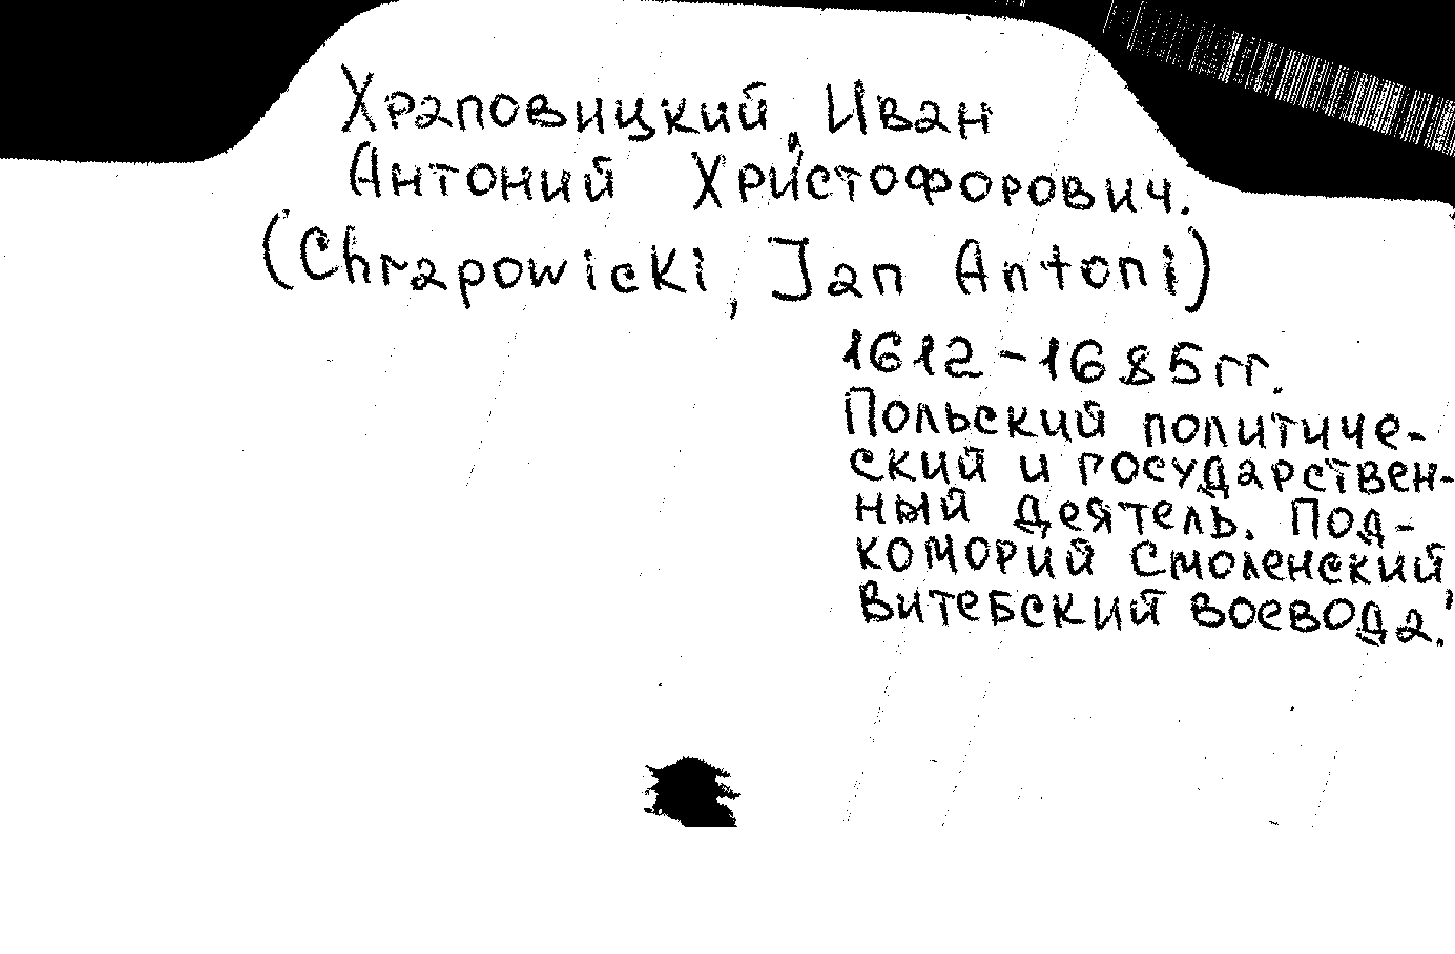 Храповицкий, Иван
Антоний Христофорович.
(Chrapowicki, Jan Antoni)
1612-1685гг.
Польский политиче-
ский и государствен-
ный деятель. Под-
коморий Смоленский,
Витебский воевода.